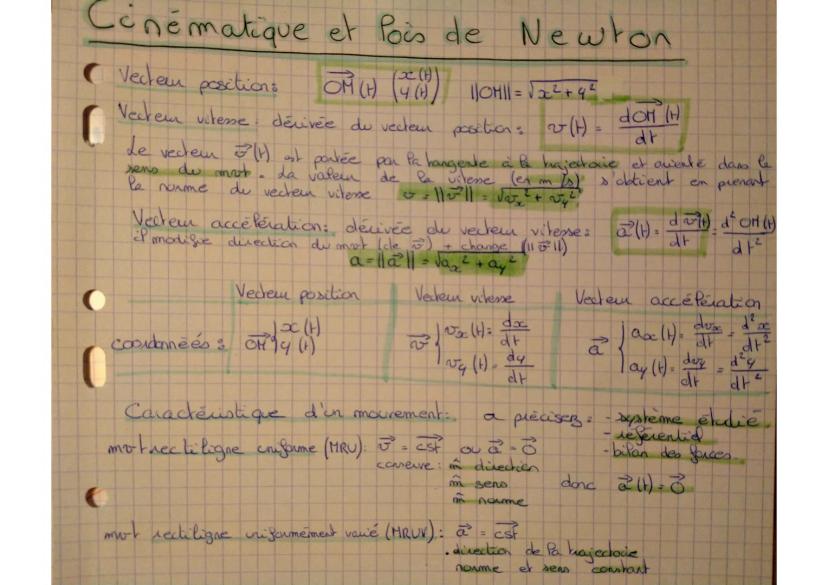 Cinématique et Lois de Newton
Vecteur position: OM⃗(t) (x(t) y(t)) ||OM|| = √x²+y²
Vecteur vitesse: dérivée du vecteur position: v(t) = dOM⃗(t)/dt
Le vecteur v⃗(t) est portée par la tangente à la trajectoire et orienté dans le
sens du mvt. La valeur de la vitesse (en m/s) s'obtient en prenant
la norme du vecteur vitesse v = ||v⃗|| = √vx² + vy²
Vecteur accélération: dérivée du vecteur vitesse: a⃗(t) = dv⃗(t)/dt = d²OM(t)/dt²
il modifie direction du mvt (de v⃗) + change (||v⃗||)
a = ||a⃗|| = √ax² + ay²
Vecteur position Vecteur vitesse Vecteur accélération
coordonnées: OM⃗ { x(t) y(t) v⃗ { vx(t) = dx/dt vy(t) = dy/dt a⃗ { ax(t) = dvx/dt = d²x/dt² ay(t) = dvy/dt = d²y/dt²
Caractéristique d'un mouvement: a préciser: - système étudié
- référentiel
mvt rectiligne uniforme (MRU): v⃗ = cst⃗ ou a⃗ = 0⃗ - bilan des forces
conserve: m̂ direction
m̂ sens donc a⃗(t) = 0⃗
m̂ norme
mvt rectiligne uniformément varié (MRUV): a⃗ = cst⃗
. direction de la trajectoire
norme et sens constant